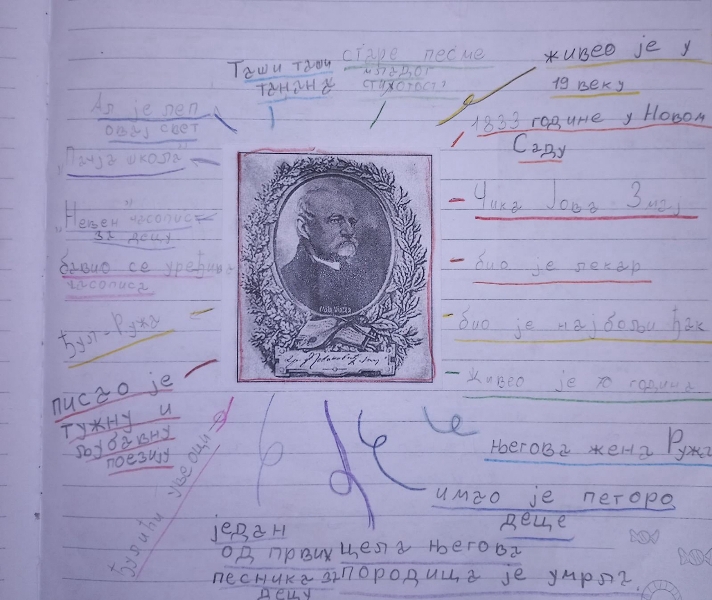 Таши таши
танана
старе песме
младог
живео је у
19 веку
1833 године у Новом
Саду
Чика Јова Змај
био је лекар
био је најбољи ђак
живео је 70 година
његова жена Ружа
имао је петоро
деце
цела његова
породица је умрла
један
од првих
песника за
децу
ђулићи увеоци
писао је
тужну и
љубавну
поезију
ђул-Ружа
бавио се уређив
часописа
„Невен" часопис
за децу
„Пачја школа"
Ал је леп
овај свет